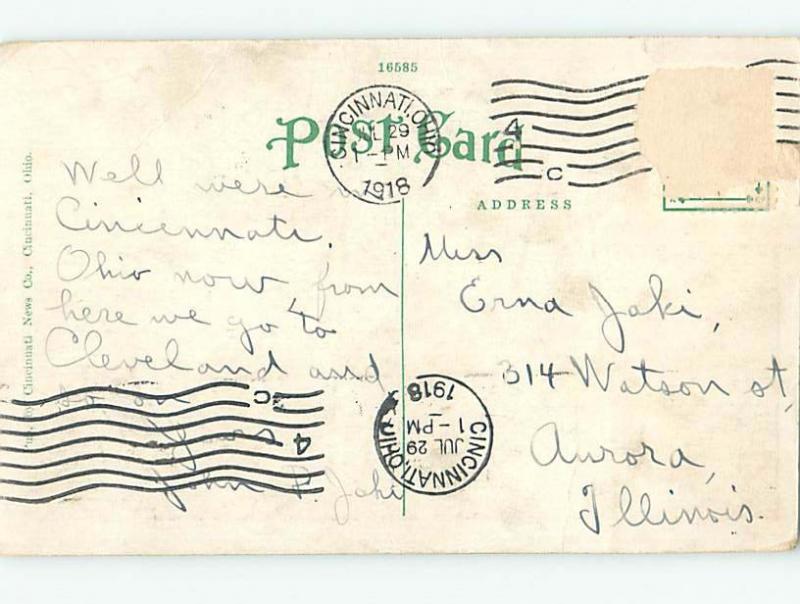 16585
Post Card
CINCINNATI, OHIO
JUL 29
1-PM
1918
4
C
ADDRESS
Well were in
Cincennati.
Ohio now from
here we go to
Cleveland and
so on
Yours
John P. Jaki
Miss
Erna Jaki,
314 Watson st,
Aurora,
Illinois.
Pub. by Cincinnati News Co., Cincinnati, Ohio.
CINCINNATI, OHIO
JUL 29
1-PM
1918
C
4